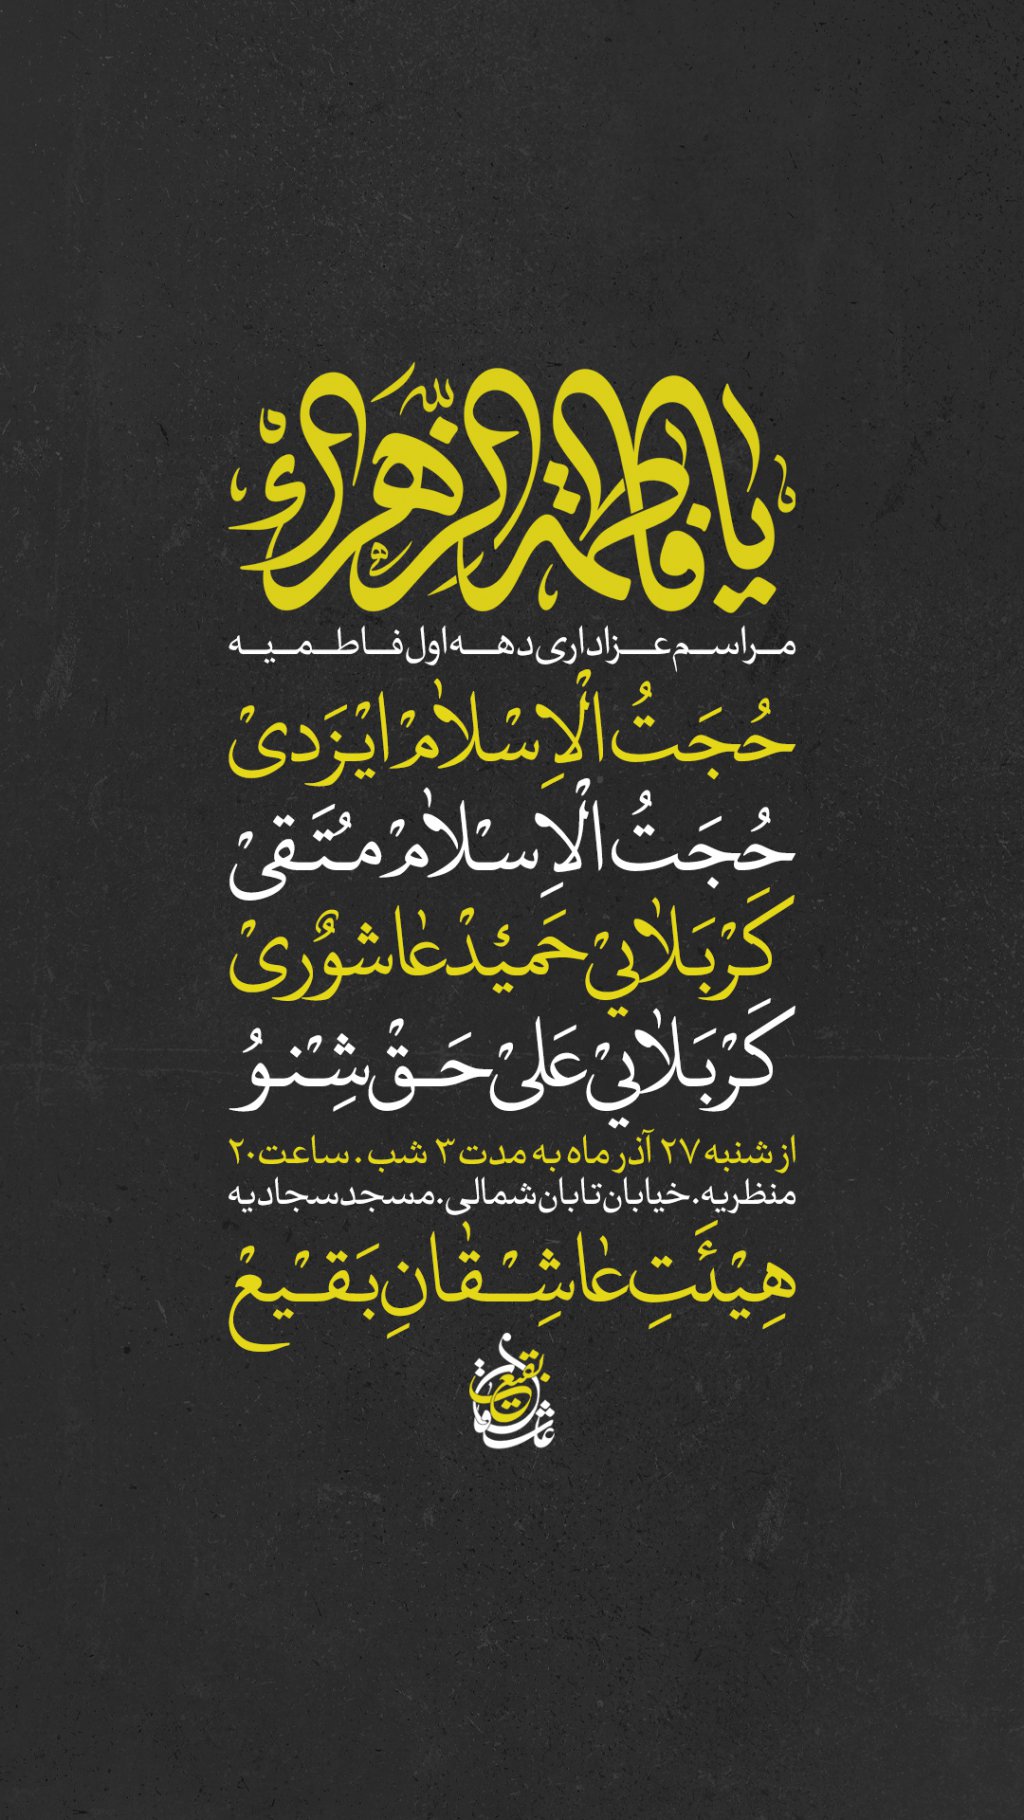 یا فاطمة الزهراء
مراسم عزاداری دهه اول فاطمیه
حُجَتُ الْاِسْلامْ ایْزَدیْ
حُجَتُ الْاِسْلامْ مُتَقیْ
کَرْبَلایي حَمیْدْ عاشوُریْ
کَرْبَلایي عَلیْ حَقْ شِنْوُ
از شنبه ۲۷ آذر ماه به مدت ۳ شب . ساعت ۲۰
منظریه . خیابان تابان شمالی . مسجد سجادیه
هِیْئَتِ عاشِقانِ بَقیْعْ
عاشقان بقیع